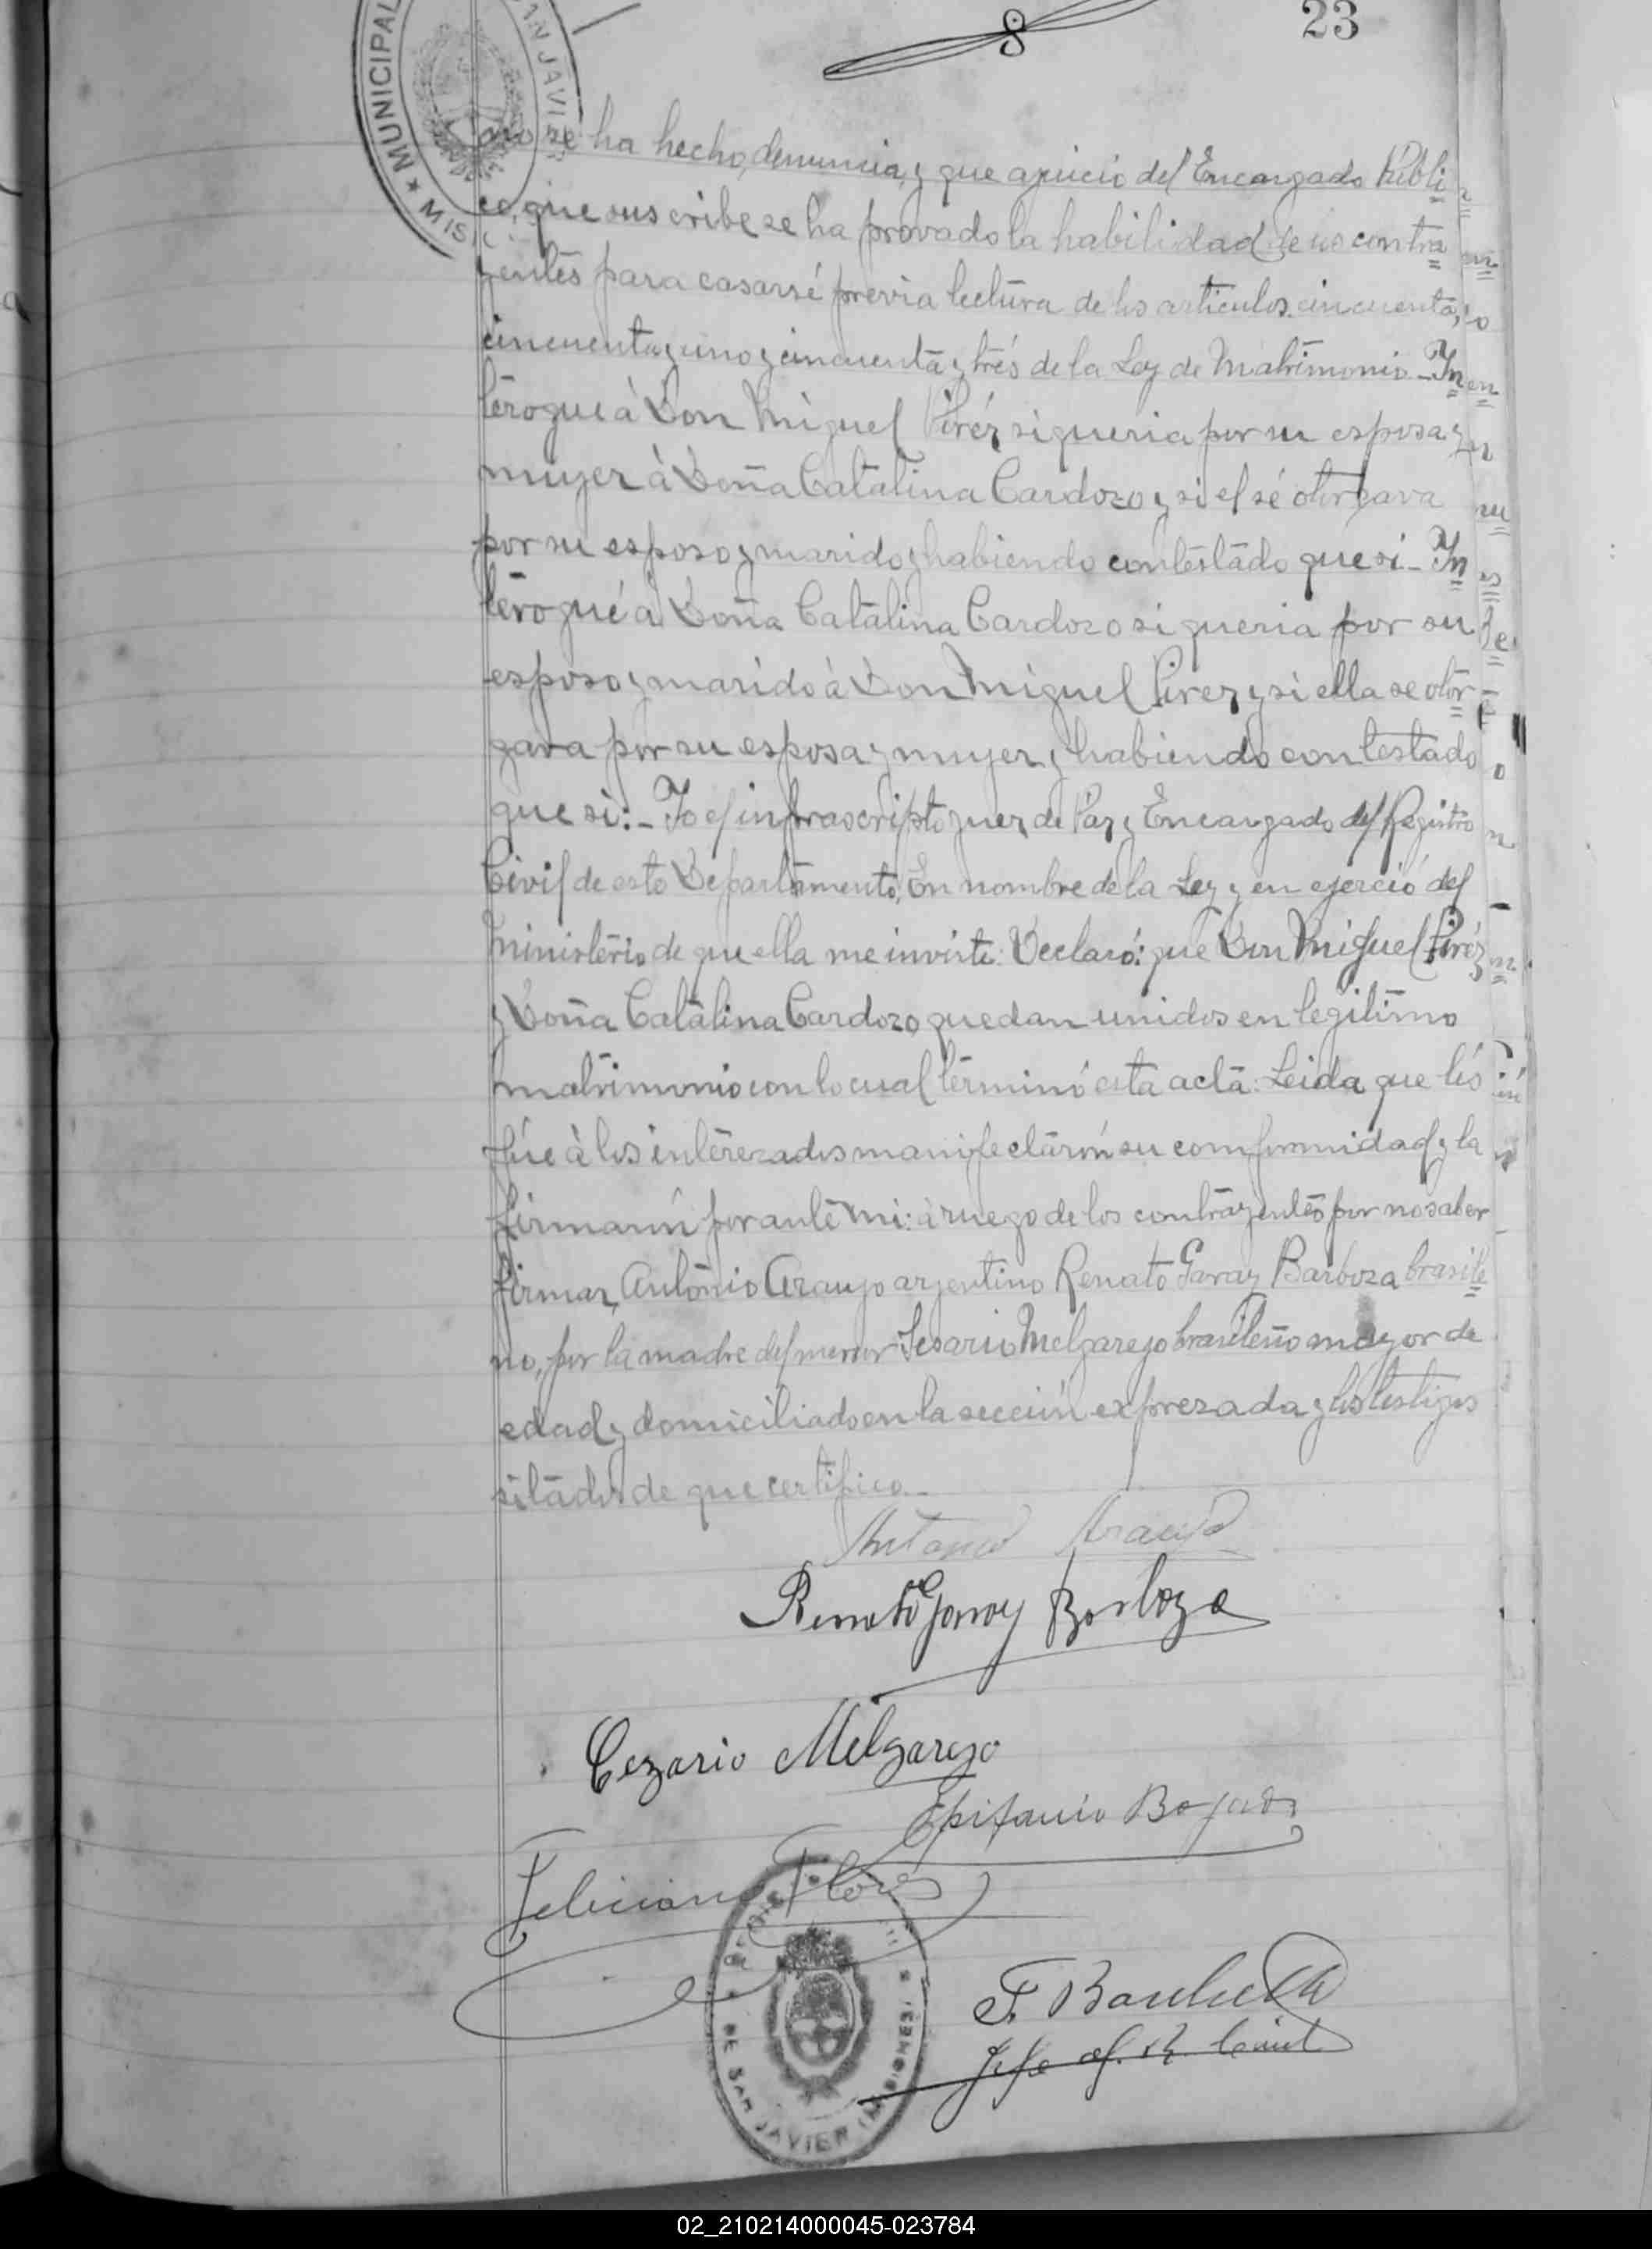 8
23
MUNICIPAL SAN JAVIER
MISI
no se ha hecho, denuncia, y que ajuicio del Encargado Públi
co, que suscribe se ha provado la habilidad de los contra
yentes para casarsé previa lectura de los articulos cincuenta,
cincuenta y uno y cincuenta y trés de la Ley de Matrimonio - In
terogué à Don Miguel Piréz si queria por su esposa y
mujer à Doña Catalina Cardozo y si el sé otorgava
por su esposo y marido y habiendo contestado que si - In
terogué a Doña Catalina Cardozo si queria por su
esposo y marido à Don Miguel Pirez y si ella se otor
gava por su esposa y mujer y habiendo contestado
que si: - Yo el infrascripto juez de Páz y Encargado del Registro
Civil de esto Departamento, En nombre de la Ley y en ejerció del
Ministério de que ella me inviste: Declaró: que Don Miguel Piréz
y Doña Catalina Cardozo, quedan unidos en legitimo
matrimonio con lo cual términó esta acta: Leida que lés
fúe à los interezados manifectarón su comformidad y la
firmarón por anté mi: à ruego de los contrayentés por no saber
firmar, António Araujo argentino Renato Garay Barboza brasile
no, por la madre del menor Sesario Melgarejo brasileño mayor de
edad y domiciliado en la sección exprezada y los testigos
sitados de que certifico -
Antonio Araujo
Renato Garay Barboza
Cezario Melgarejo
Epifanio
Feliciano Flores
F.
Jefe of. R. Civil
DE SAN JAVIER (MISIONES)
02_210214000045-023784